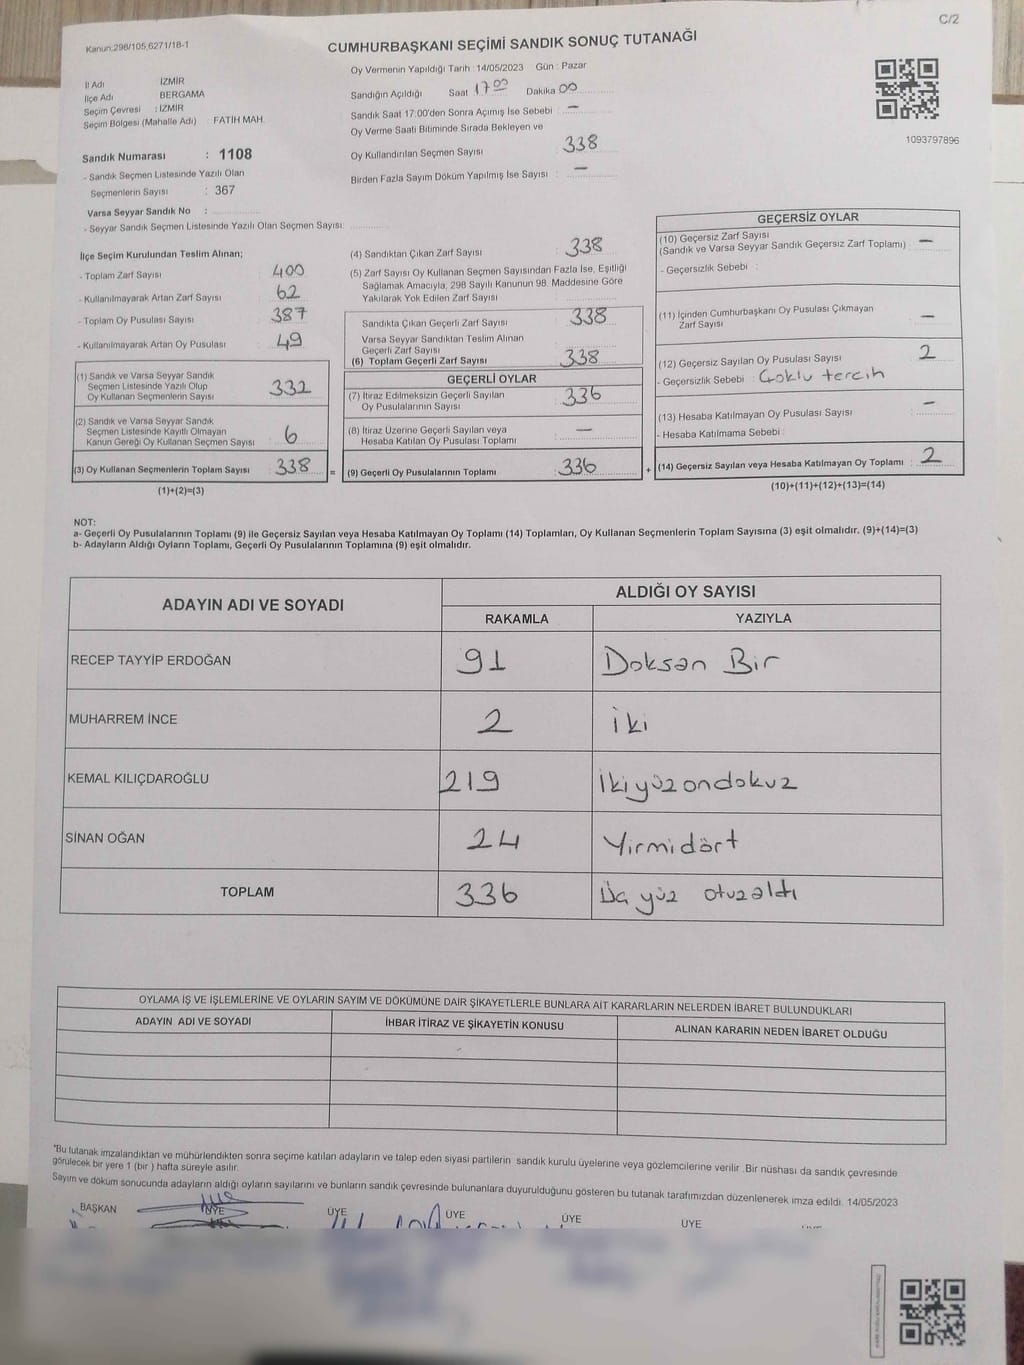 C/2
Kanun:298/105,6271/18-1
CUMHURBAŞKANI SEÇİMİ SANDIK SONUÇ TUTANAĞI
İl Adı İZMİR
İlçe Adı BERGAMA
Seçim Çevresi : İZMİR
Seçim Bölgesi (Mahalle Adı) FATİH MAH.
Sandık Numarası : 1108
- Sandık Seçmen Listesinde Yazılı Olan
Seçmenlerin Sayısı : 367
Varsa Seyyar Sandık No :
- Seyyar Sandık Seçmen Listesinde Yazılı Olan Seçmen Sayısı:
Oy Vermenin Yapıldığı Tarih : 14/05/2023 Gün : Pazar
Sandığın Açıldığı Saat 17 00 Dakika 00
Sandık Saat 17.00'den Sonra Açımış İse Sebebi : —
Oy Verme Saati Bitiminde Sırada Bekleyen ve
Oy Kullandırılan Seçmen Sayısı : 338
Birden Fazla Sayım Döküm Yapılmış İse Sayısı : —
1093797896
İlçe Seçim Kurulundan Teslim Alınan;
- Toplam Zarf Sayısı : 400
- Kullanılmayarak Artan Zarf Sayısı : 62
- Toplam Oy Pusulası Sayısı : 387
- Kullanılmayarak Artan Oy Pusulası : 49
(1) Sandık ve Varsa Seyyar Sandık
Seçmen Listesinde Yazılı Olup
Oy Kullanan Seçmenlerin Sayısı : 332
(2) Sandık ve Varsa Seyyar Sandık
Seçmen Listesinde Kayıtlı Olmayan
Kanun Gereği Oy Kullanan Seçmen Sayısı : 6
(3) Oy Kullanan Seçmenlerin Toplam Sayısı : 338
(1)+(2)=(3)
=
(4) Sandıktan Çıkan Zarf Sayısı : 338
(5) Zarf Sayısı Oy Kullanan Seçmen Sayısından Fazla İse, Eşitliği
Sağlamak Amacıyla, 298 Sayılı Kanunun 98. Maddesine Göre
Yakılarak Yok Edilen Zarf Sayısı :
Sandıkta Çıkan Geçerli Zarf Sayısı : 338
Varsa Seyyar Sandıktan Teslim Alınan
Geçerli Zarf Sayısı :
(6) Toplam Geçerli Zarf Sayısı : 338
GEÇERLİ OYLAR
(7) İtiraz Edilmeksizin Geçerli Sayılan
Oy Pusulalarının Sayısı : 336
(8) İtiraz Üzerine Geçerli Sayılan veya
Hesaba Katılan Oy Pusulası Toplamı : —
(9) Geçerli Oy Pusulalarının Toplamı : 336
+
GEÇERSİZ OYLAR
(10) Geçersiz Zarf Sayısı
(Sandık ve Varsa Seyyar Sandık Geçersiz Zarf Toplamı) : —
- Geçersizlik Sebebi :
(11) İçinden Cumhurbaşkanı Oy Pusulası Çıkmayan
Zarf Sayısı : —
(12) Geçersiz Sayılan Oy Pusulası Sayısı : 2
- Geçersizlik Sebebi : Çoklu tercih
(13) Hesaba Katılmayan Oy Pusulası Sayısı : —
- Hesaba Katılmama Sebebi :
(14) Geçersiz Sayılan veya Hesaba Katılmayan Oy Toplamı : 2
(10)+(11)+(12)+(13)=(14)
NOT:
a- Geçerli Oy Pusulalarının Toplamı (9) ile Geçersiz Sayılan veya Hesaba Katılmayan Oy Toplamı (14) Toplamları, Oy Kullanan Seçmenlerin Toplam Sayısına (3) eşit olmalıdır. (9)+(14)=(3)
b- Adayların Aldığı Oyların Toplamı, Geçerli Oy Pusulalarının Toplamına (9) eşit olmalıdır.
ADAYIN ADI VE SOYADI ALDIĞI OY SAYISI
RAKAMLA YAZIYLA
RECEP TAYYİP ERDOĞAN 91 Doksan Bir
MUHARREM İNCE 2 İki
KEMAL KILIÇDAROĞLU 219 İkiyüzondokuz
SİNAN OĞAN 24 Yirmidört
TOPLAM 336 Üç yüz otuzaltı
OYLAMA İŞ VE İŞLEMLERİNE VE OYLARIN SAYIM VE DÖKÜMÜNE DAİR ŞİKAYETLERLE BUNLARA AİT KARARLARIN NELERDEN İBARET BULUNDUKLARI
ADAYIN ADI VE SOYADI İHBAR İTİRAZ VE ŞİKAYETİN KONUSU ALINAN KARARIN NEDEN İBARET OLDUĞU
*Bu tutanak imzalandıktan ve mühürlendikten sonra seçime katılan adayların ve talep eden siyasi partilerin sandık kurulu üyelerine veya gözlemcilerine verilir .Bir nüshası da sandık çevresinde
görülecek bir yere 1 (bir ) hafta süreyle asılır.
Sayım ve döküm sonucunda adayların aldığı oyların sayılarını ve bunların sandık çevresinde bulunanlara duyurulduğunu gösteren bu tutanak tarafımızdan düzenlenerek imza edildi. 14/05/2023
BAŞKAN ÜYE ÜYE ÜYE ÜYE ÜYE